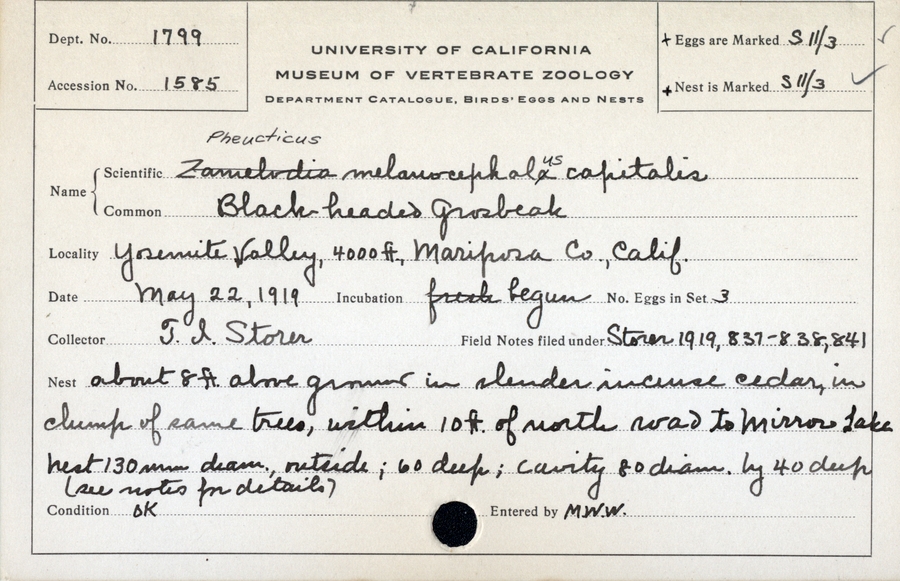 Dept. No. 1799
Accession No. 1585
UNIVERSITY OF CALIFORNIA
MUSEUM OF VERTEBRATE ZOOLOGY
DEPARTMENT CATALOGUE, BIRDS' EGGS AND NESTS
+ Eggs are Marked S 11/3 ✓
+ Nest is Marked S 11/3 ✓
Pheucticus
Name { Scientific Zamelodia melanocephala us capitalis
Common Black-headed Grosbeak
Locality Yosemite Valley, 4000 ft., Mariposa Co., Calif.
Date May 22, 1919 Incubation fresh begun No. Eggs in Set 3
Collector T. I. Storer Field Notes filed under Storer 1919, 837-838, 841
Nest about 8 ft. above ground in slender incense cedar, in
clump of same trees, within 10 ft. of north road to Mirror Lake
nest 130 mm diam., outside; 60 deep; cavity 80 diam. by 40 deep
(see notes for details)
Condition OK Entered by M.W.W.